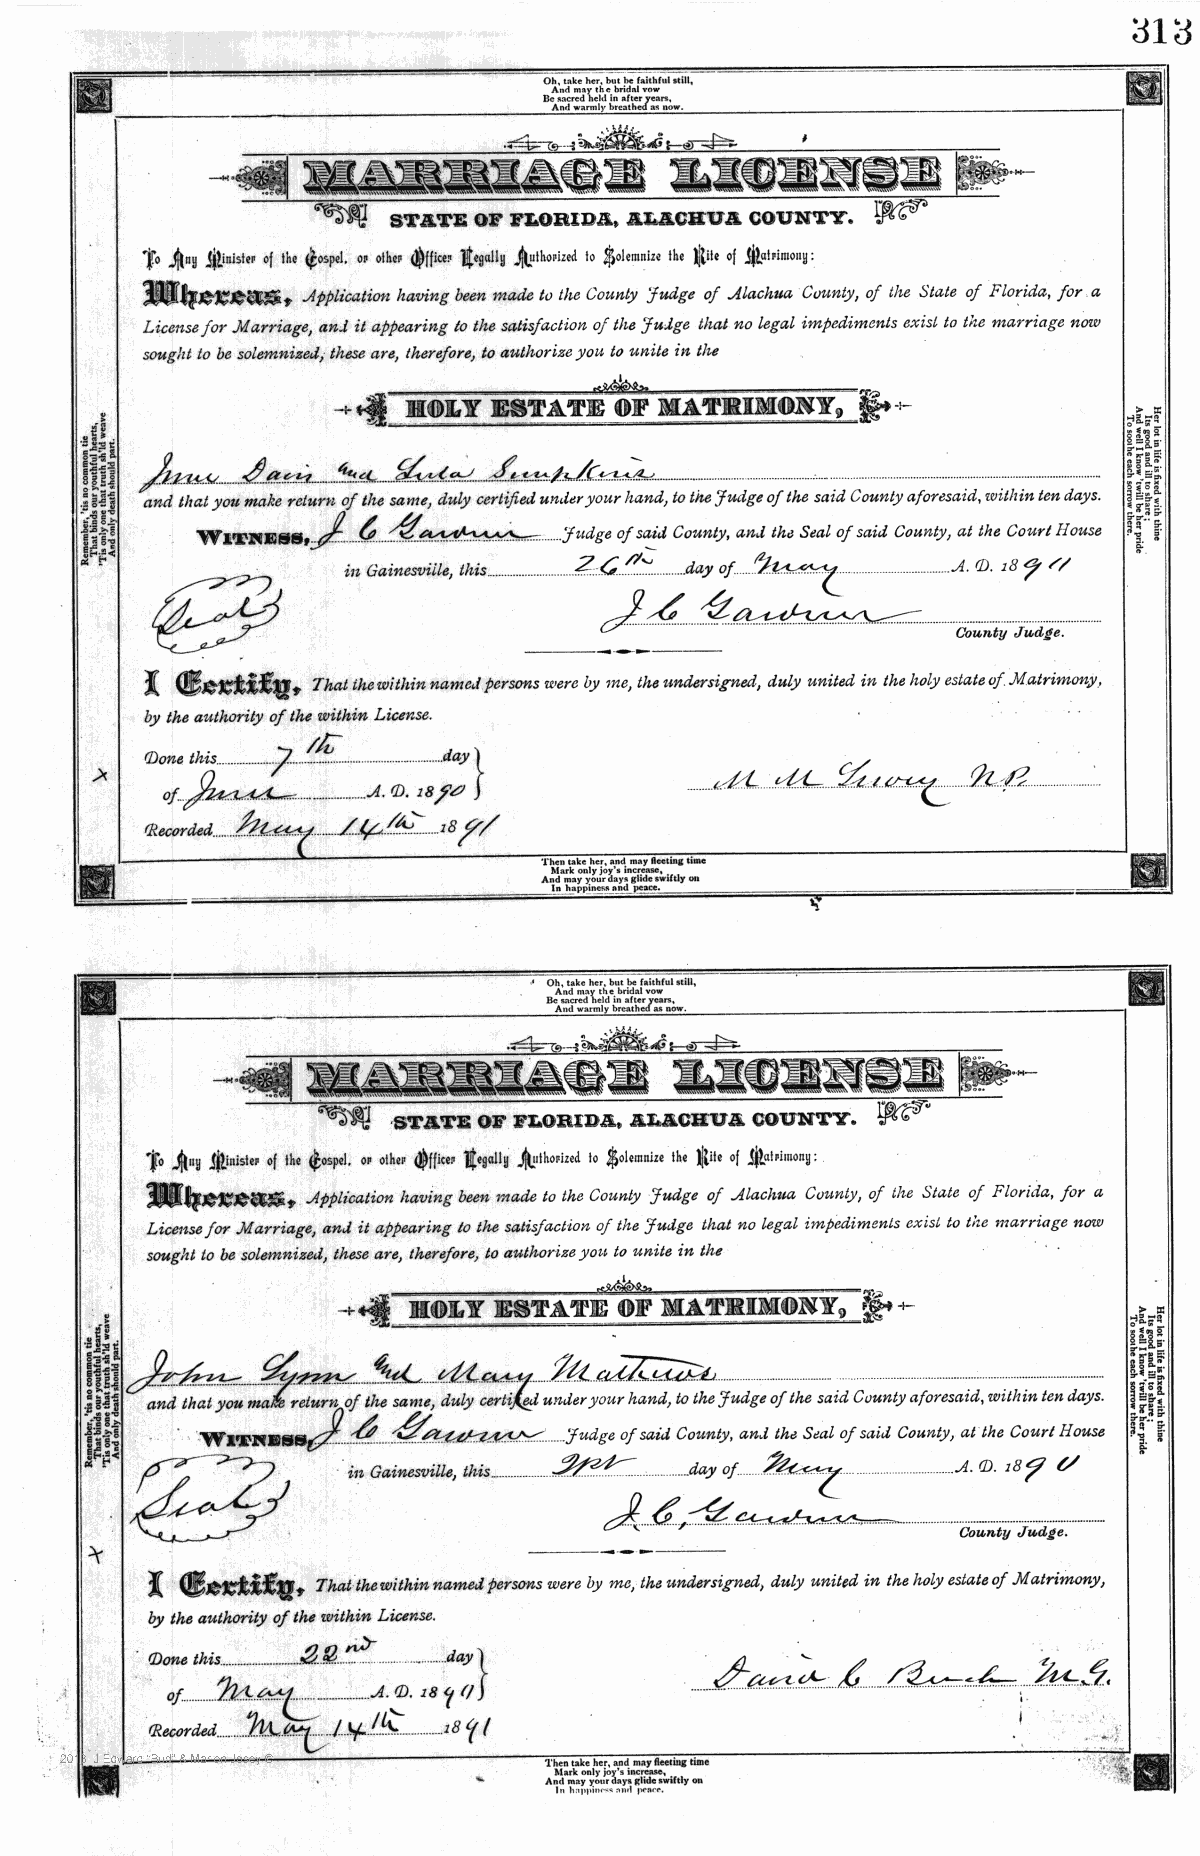 313
Oh, take her, but be faithful still,
And may the bridal vow
Be sacred held in after years,
And warmly breathed as now.
MARRIAGE LICENSE
STATE OF FLORIDA, ALACHUA COUNTY.
To Any Minister of the Gospel, or other Officer Legally Authorized to Solemnize the Rite of Matrimony:
Whereas, Application having been made to the County Judge of Alachua County, of the State of Florida, for a
License for Marriage, and it appearing to the satisfaction of the Judge that no legal impediments exist to the marriage now
sought to be solemnized, these are, therefore, to authorize you to unite in the
HOLY ESTATE OF MATRIMONY,
Remember, 'tis no common tie
That binds our youthful hearts,
'Tis only one that truth sh'ld weave
And only death should part.
Her lot in life is fixed with thine
Its good and ill to share;
And well I know 'twill be her pride
To soothe each sorrow there.
June Davis and Lula Simpkins
and that you make return of the same, duly certified under your hand, to the Judge of the said County aforesaid, within ten days.
WITNESS, J C Gardner Judge of said County, and the Seal of said County, at the Court House
in Gainesville, this 26th day of May A. D. 1890
Seal
J C Gardner
County Judge.
I Certify, That the within named persons were by me, the undersigned, duly united in the holy estate of Matrimony,
by the authority of the within License.
Done this 7th day
of June A. D. 1890
M M N.P.
Recorded May 14th 1891
Then take her, and may fleeting time
Mark only joy's increase,
And may your days glide swiftly on
In happiness and peace.
Oh, take her, but be faithful still,
And may the bridal vow
Be sacred held in after years,
And warmly breathed as now.
MARRIAGE LICENSE
STATE OF FLORIDA, ALACHUA COUNTY.
To Any Minister of the Gospel, or other Officer Legally Authorized to Solemnize the Rite of Matrimony:
Whereas, Application having been made to the County Judge of Alachua County, of the State of Florida, for a
License for Marriage, and it appearing to the satisfaction of the Judge that no legal impediments exist to the marriage now
sought to be solemnized, these are, therefore, to authorize you to unite in the
HOLY ESTATE OF MATRIMONY,
Remember, 'tis no common tie
That binds our youthful hearts,
'Tis only one that truth sh'ld weave
And only death should part.
Her lot in life is fixed with thine
Its good and ill to share;
And well I know 'twill be her pride
To soothe each sorrow there.
John Lynn and Mary Mathews
and that you make return of the same, duly certified under your hand, to the Judge of the said County aforesaid, within ten days.
WITNESS, J C Gardner Judge of said County, and the Seal of said County, at the Court House
in Gainesville, this day of May A. D. 1890
Seal
J. C. Gardner
County Judge.
I Certify, That the within named persons were by me, the undersigned, duly united in the holy estate of Matrimony,
by the authority of the within License.
Done this 22nd day
of May A. D. 1890
David C M.G.
Recorded May 14th 1891
Then take her, and may fleeting time
Mark only joy's increase,
And may your days glide swiftly on
In happiness and peace.